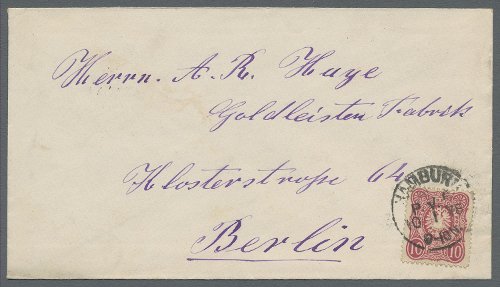 Herrn. A. R. Haye
Goldleisten Fabrik
Klosterstraße 64
Berlin
HAMBURG
10 10